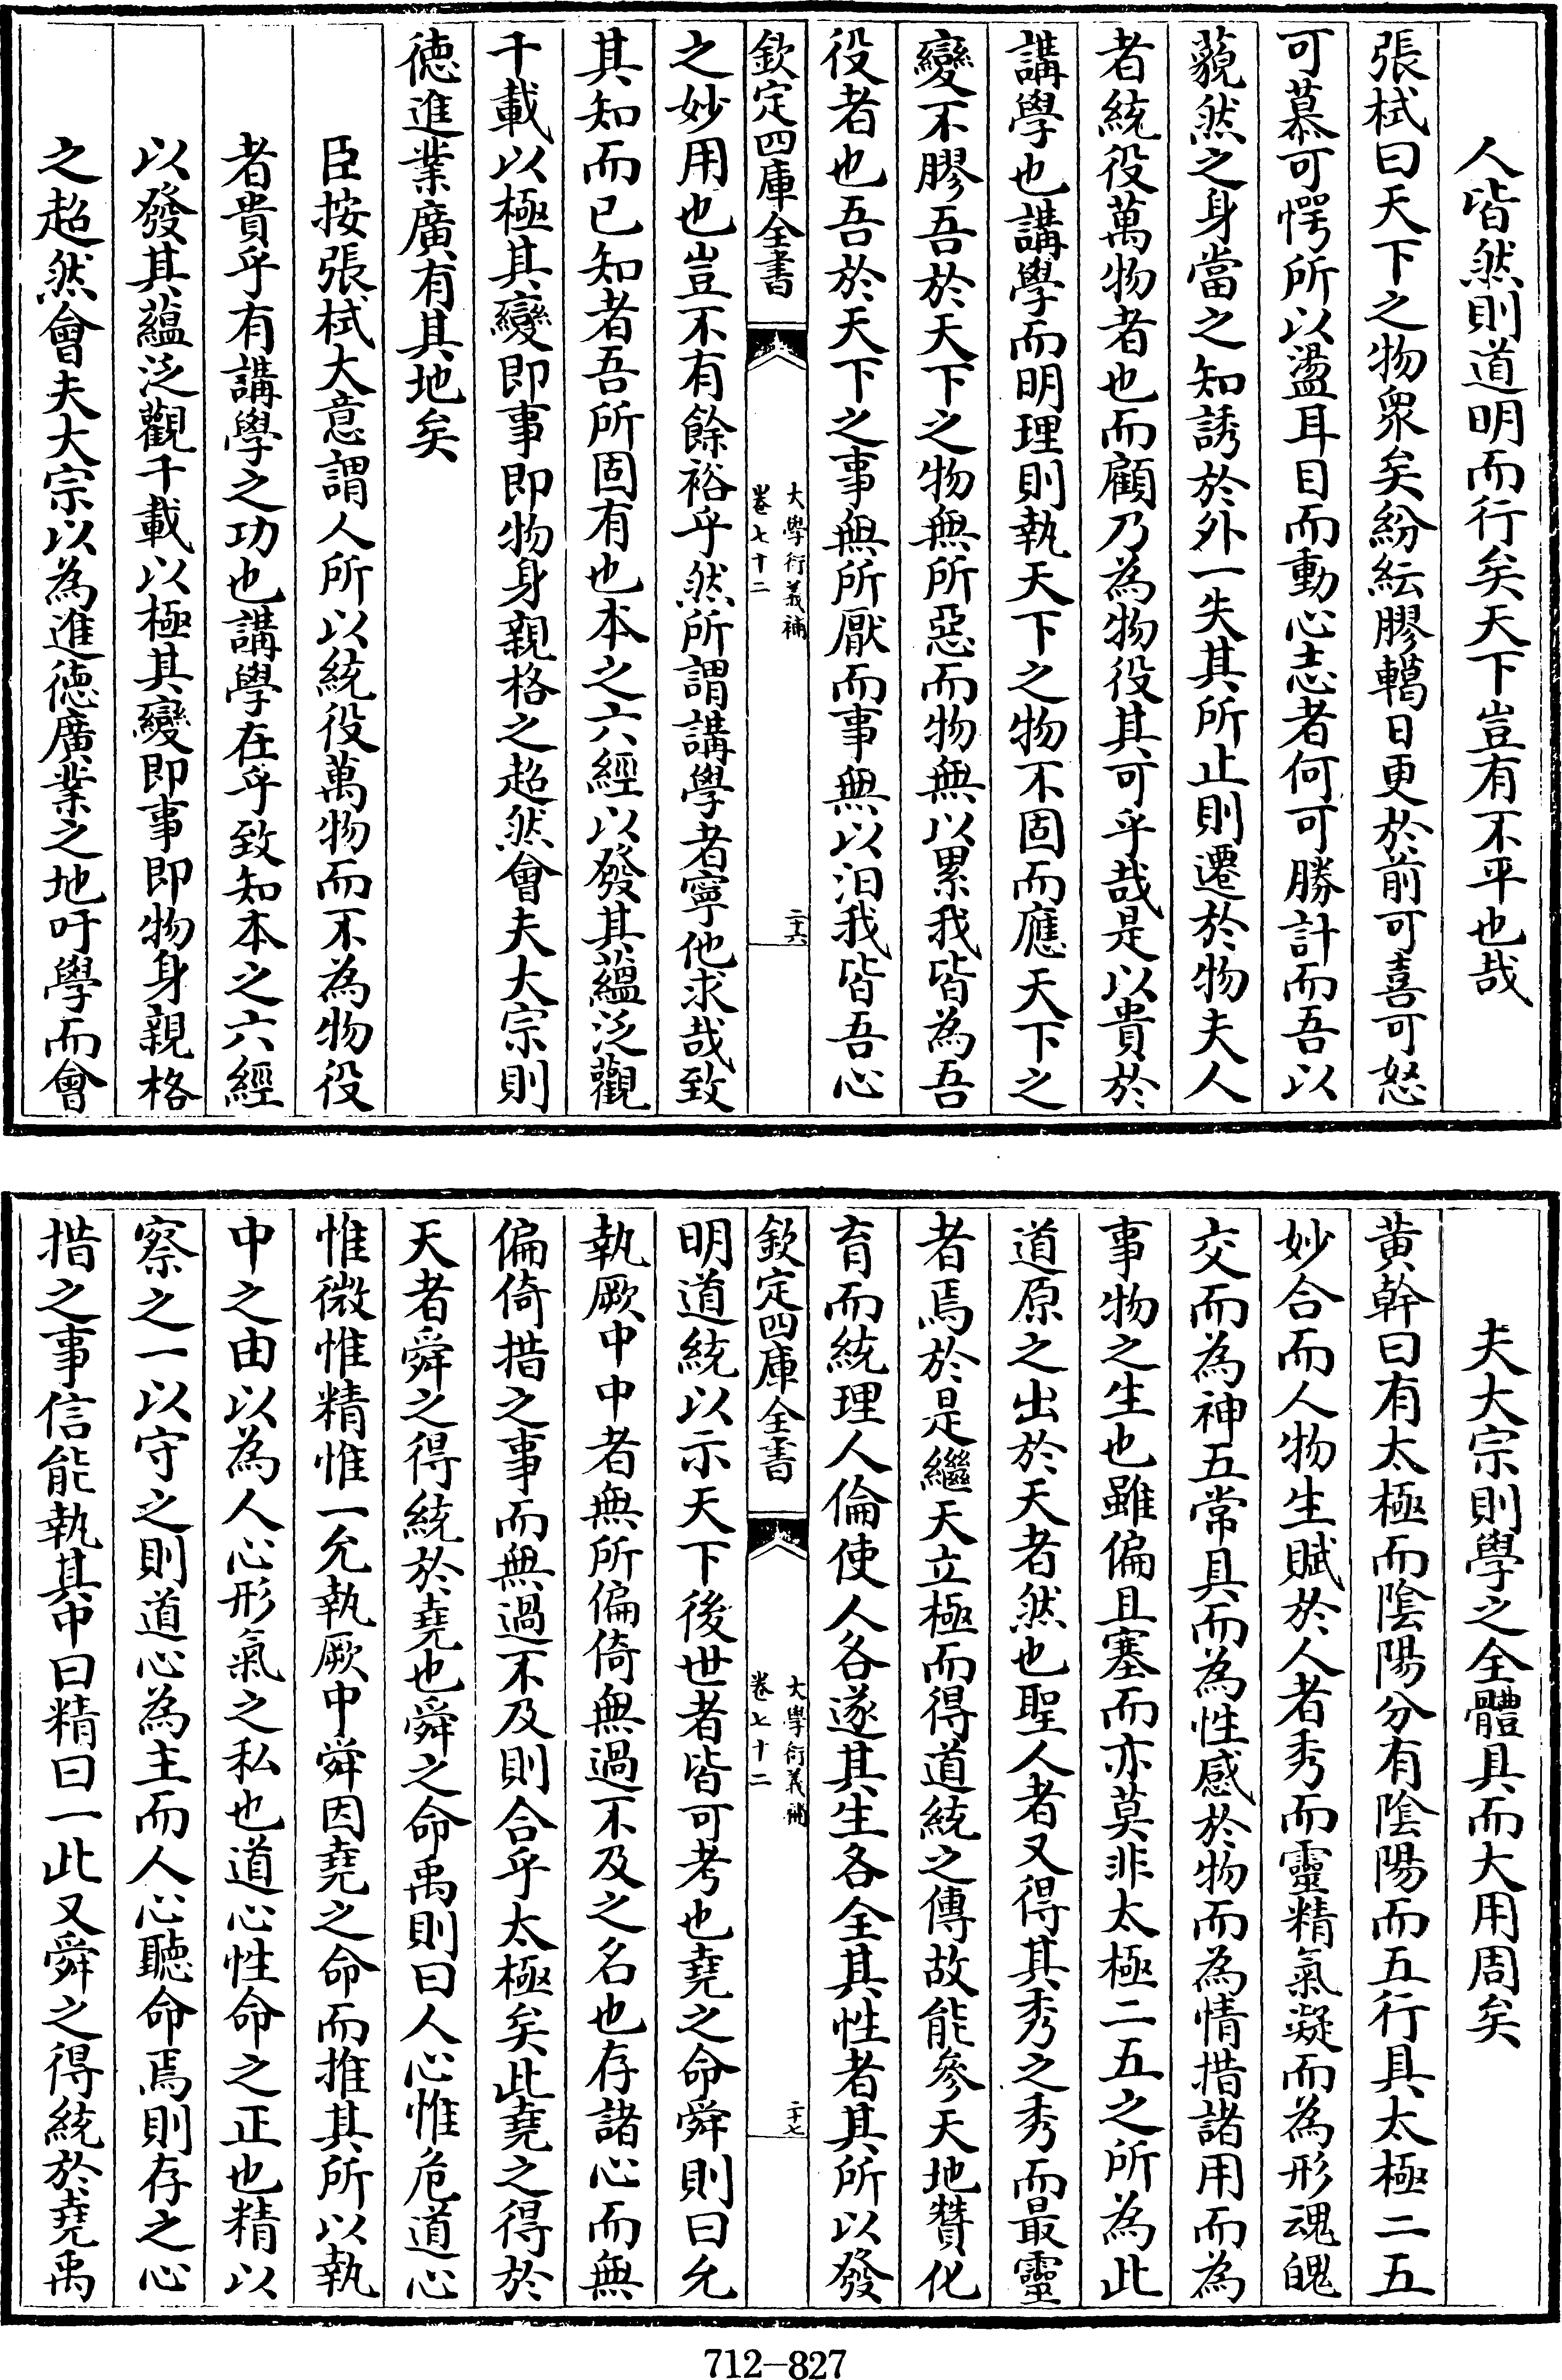 人皆然則道明而行矣天下豈有不平也哉
張栻曰天下之物衆矣紛紜膠轕日更於前可喜可怒
可慕可愕所以盪耳目而動心志者何可勝計而吾以
藐然之身當之知誘於外一失其所止則遷於物夫人
者統役萬物者也而顧乃為物役其可乎哉是以貴於
講學也講學而明理則執天下之物不固而應天下之
變不膠吾於天下之物無所惡而物無以累我皆為吾
役者也吾於天下之事無所厭而事無以汨我皆吾心
欽定四庫全書
大學衍義補
卷七十二
二十六
之妙用也豈不有餘裕乎然所謂講學者寧他求哉致
其知而已知者吾所固有也本之六經以發其蘊泛觀
千載以極其變即事即物身親格之超然會夫大宗則
德進業廣有其地矣
臣按張栻大意謂人所以統役萬物而不為物役
者貴乎有講學之功也講學在乎致知本之六經
以發其蘊泛觀千載以極其變即事即物身親格
之超然會夫大宗以為進德廣業之地吁學而會
夫大宗則學之全體具而大用周矣
黄幹曰有太極而陰陽分有陰陽而五行具太極二五
妙合而人物生賦於人者秀而靈精氣凝而為形魂魄
交而為神五常具而為性感於物而為情措諸用而為
事物之生也雖偏且塞而亦莫非太極二五之所為此
道原之出於天者然也聖人者又得其秀之秀而最靈
者焉於是繼天立極而得道統之傳故能參天地贊化
育而統理人倫使人各遂其生各全其性者其所以發
欽定四庫全書
大學衍義補
卷七十二
二十七
明道統以示天下後世者皆可考也堯之命舜則曰允
執厥中中者無所偏倚無過不及之名也存諸心而無
偏倚措之事而無過不及則合乎太極矣此堯之得於
天者舜之得統於堯也舜之命禹則曰人心惟危道心
惟微惟精惟一允執厥中舜因堯之命而推其所以執
中之由以為人心形氣之私也道心性命之正也精以
察之一以守之則道心為主而人心聽命焉則存之心
措之事信能執其中曰精曰一此又舜之得統於堯禹
712-827